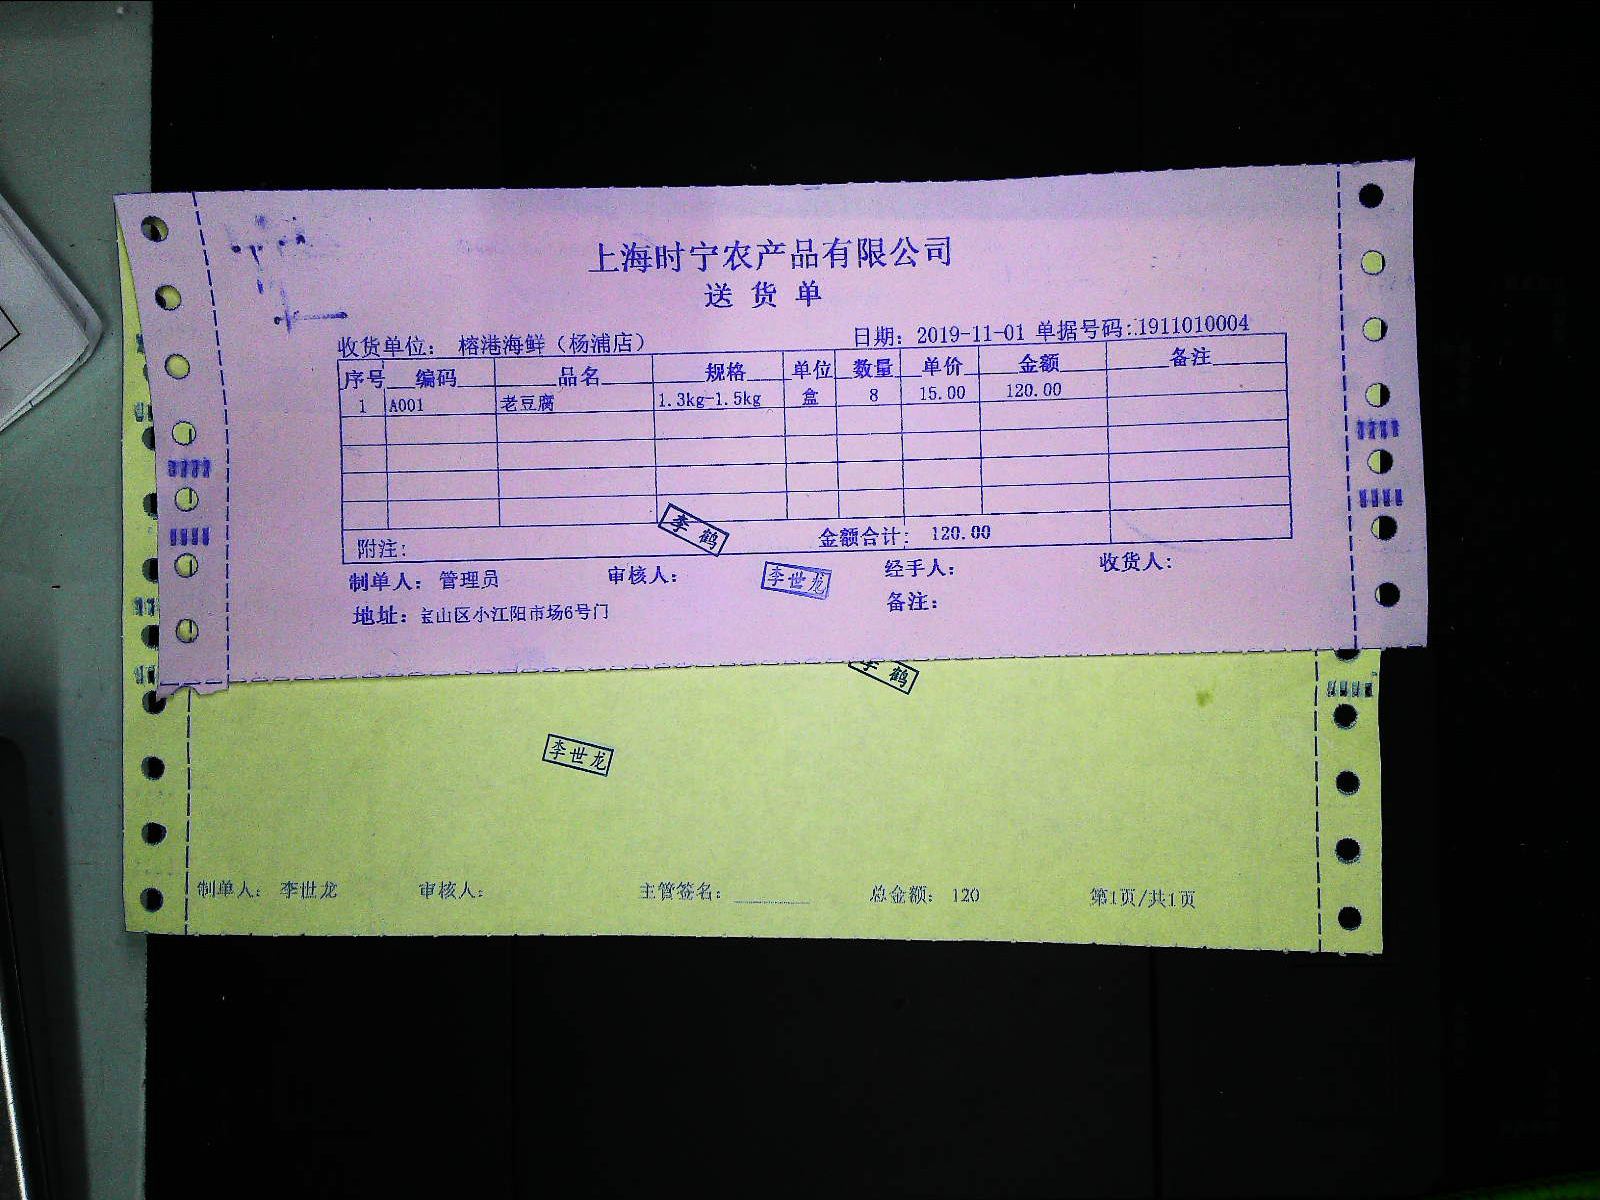 上海时宁农产品有限公司
送货单
收货单位： 榕港海鲜（杨浦店） 日期： 2019-11-01 单据号码：1911010004
序号 编码 品名 规格 单位 数量 单价 金额 备注
1 A001 老豆腐 1.3kg-1.5kg 盒 8 15.00 120.00
李鹤
附注： 金额合计： 120.00
制单人： 管理员 审核人： 李世龙 经手人： 收货人：
地址： 宝山区小江阳市场6号门 备注：
李鹤
李世龙
制单人： 李世龙 审核人： 主管签名： 总金额： 120 第1页/共1页